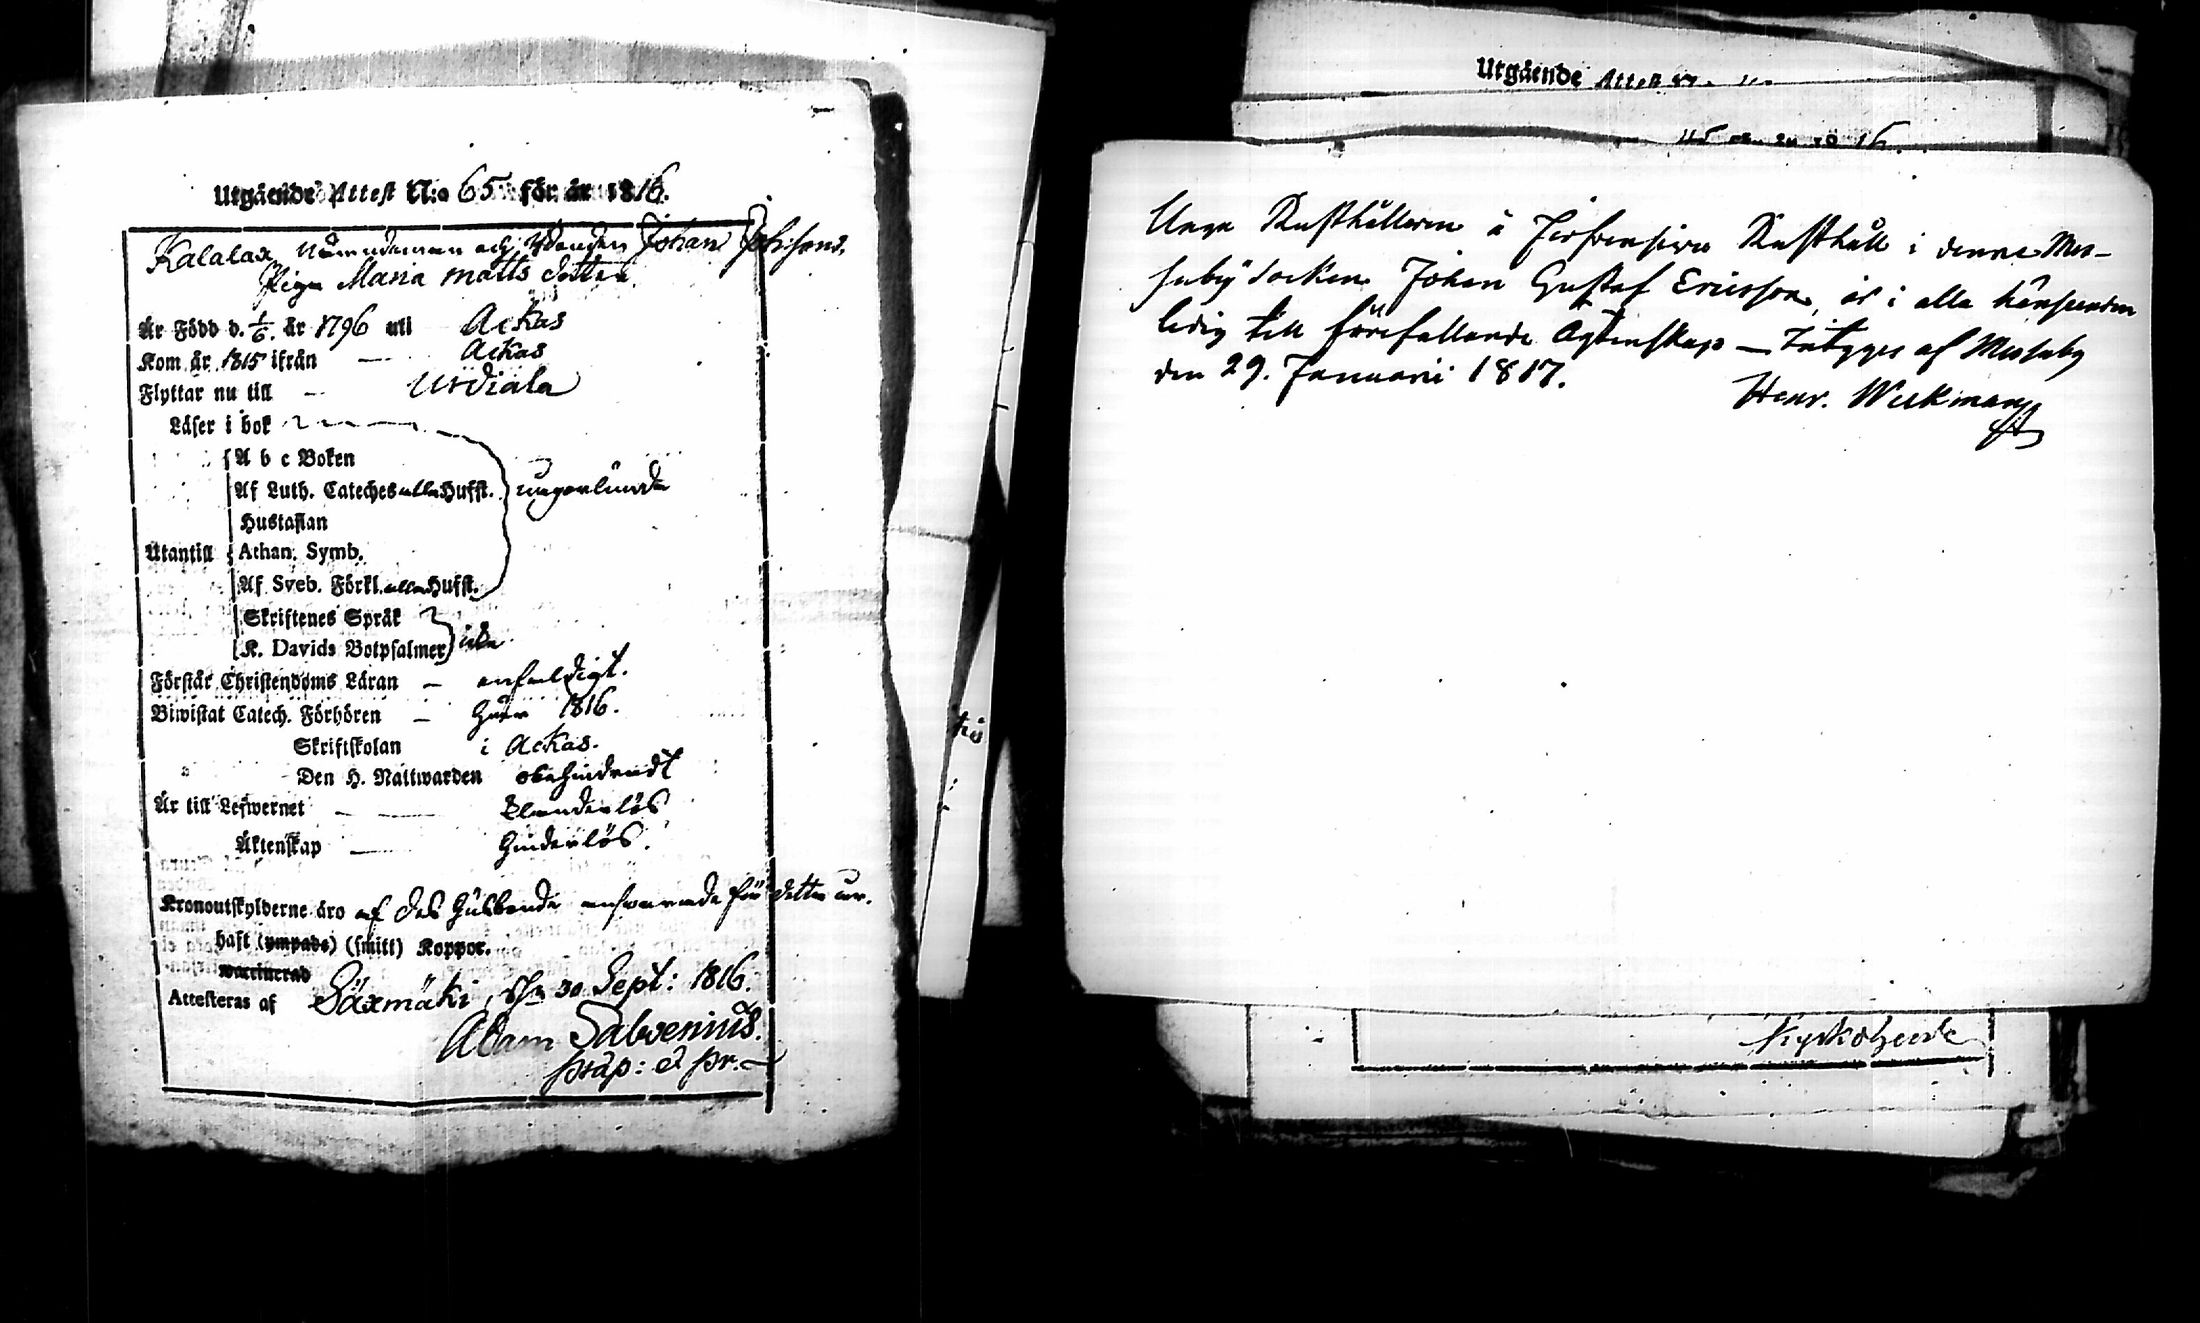 Utgående Attest N:o 65 för år 1816.
Kalalax Nämndeman och Åboanden Johan Johssons
Piga Maria Matts dotter
Är Född d. 1/6. år 1796 uti Ackas
Kom år 1815 ifrån — Ackas
Flyttar nu till — Urdiala
Läser i bok
A b c Boken
Af Luth. Cateches alla Hufst. ungerlunda
Hustaflan
Utantill Athan. Symb.
Af Sveb. Förkl. alla Hufst.
Skriftenes Språk
K. Davids Botpsalmer icke
Förstår Christendoms Läran — enfaldigt.
Biwistat Catech. Förhören — här 1816.
Skriftskolan i Ackas.
Den H. Nattwarden obehindradt
Är till Lefwernet — — klanderlös
Äktenskap — hinderlös.
Kronoutskylderne äro af des husbonde ansvarade för detta år.
haft (ympade) (smitt) Koppor.
waccinerad
Attesteras af Säxmäki, d. 30 Sept: 1816.
Adam Salvenius.
præp: et pr.
Utgående Attest
16.
Unga Rusthållaren å Rusthåll i denne Mes-
suby Socken Johan Gustaf Ericsson, är i alla hänseenden
ledig till förefallande Ägtenskap — Intygas af Messuby
den 29. Januarii 1817.
Henr. Weckman
Kyrkoherde